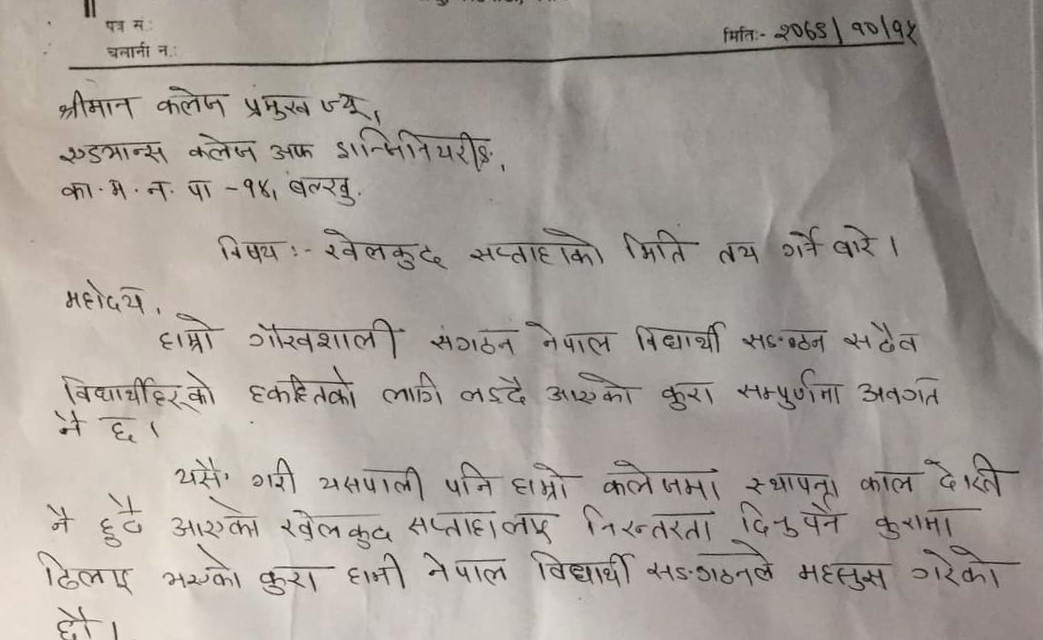 पत्र मं:
चलानी न.:
मिति:- २०६९/१०/१५
श्रीमान कलेज प्रमुख ज्यू,
एडभान्स कलेज अफ इान्जिनियरीङ,
का. म. न. पा -१४, बल्खु.
विषय :- खेलकुद सप्ताहाको मिति तय गर्ने बारे ।
महोदय,
हाम्रो गौरवशाली संगठन नेपाल विद्यार्थी सङ.गठन सदैव
विद्यार्थीहरुको हकहितको लागी लड्दै आएको कुरा सम्पुर्णमा अवगत
नै छ ।
यसै गरी यसपाली पनि हाम्रो कलेजमा स्थापना काल देखि
नै हुदै आएको खेलकुद सप्ताहालाई निरन्तरता दिनु पर्ने कुरामा
ढिलाई भएको कुरा हामी नेपाल विद्यार्थी सङ.गठनले महसुस गरेको
छौ ।